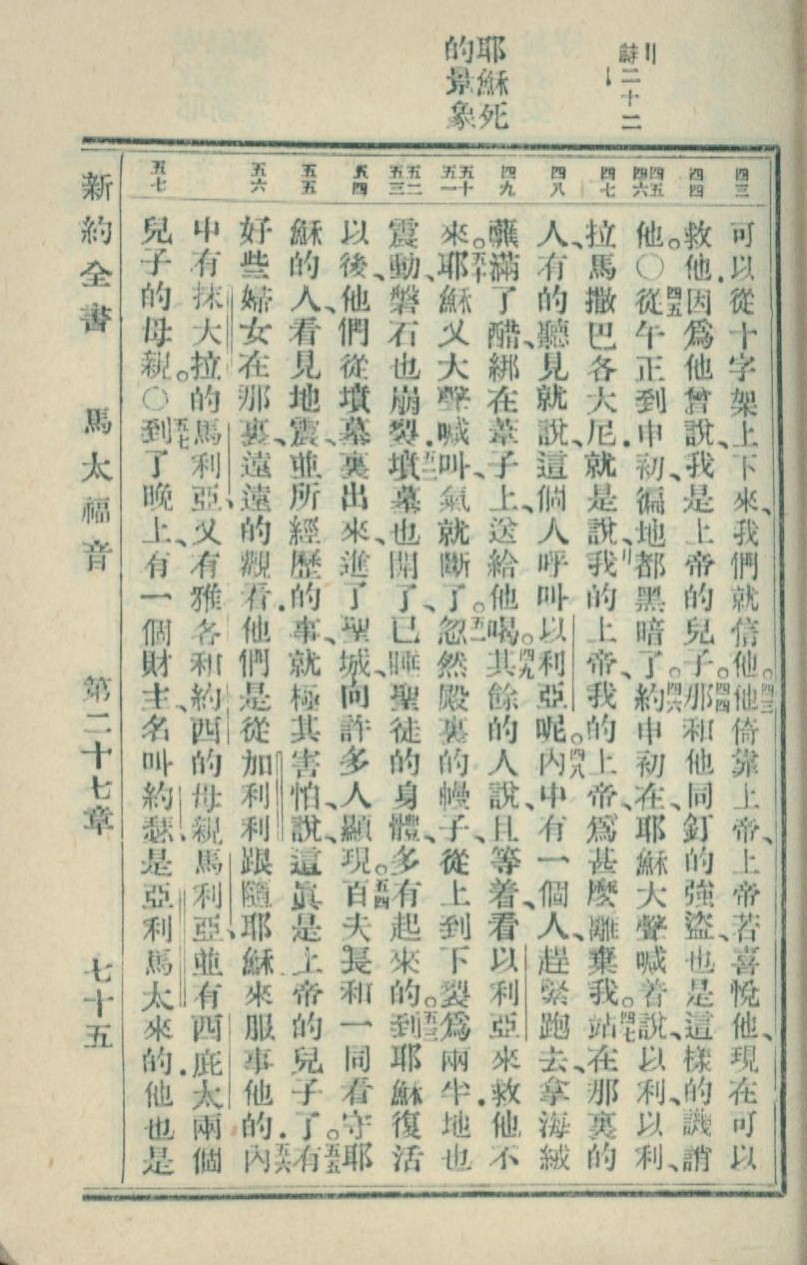 〢詩二十二
耶穌死
的景象
四三
四四
四五
四六
四七
四八
四九
五十
五一
五二
五三
五四
五五
五六
五七
可以從十字架上下來、我們就信他。四三他倚靠上帝、上帝若喜悅他、現在可以
救他．因爲他曾說、我是上帝的兒子。四四那和他同釘的強盜、也是這樣的譏誚
他。○四五從午正到申初、徧地都黑暗了。四六約申初在、耶穌大聲喊着說、以利、以利、
拉馬撒巴各大尼．就是說、〢我的上帝、我的上帝、爲甚麼離棄我。四七站在那裏的
人、有的聽見就說、這個人呼叫以利亞呢。四八內中有一個人、趕緊跑去、拿海絨
蘸滿了醋、綁在葦子上、送給他喝。四九其餘的人說、且等着看以利亞來救他不
來。五十耶穌又大聲喊叫、氣就斷了。五一忽然殿裏的幔子、從上到下裂爲兩半．地也
震動、磐石也崩裂．五二墳墓也開了、已睡聖徒的身體、多有起來的。五三到耶穌復活
以後、他們從墳墓裏出來、進了聖城、向許多人顯現。五四百夫長和一同看守耶
穌的人、看見地震、並所經歷的事、就極其害怕、說、這眞是上帝的兒子了。五五有
好些婦女在那裏、遠遠的觀看．他們是從加利利跟隨耶穌來服事他的．五六內
中有抹大拉的馬利亞、又有雅各和約西的母親馬利亞、並有西庇太兩個
兒子的母親。○五七到了晚上、有一個財主、名叫約瑟、是亞利馬太來的．他也是
新約全書　馬太福音　第二十七章　七十五